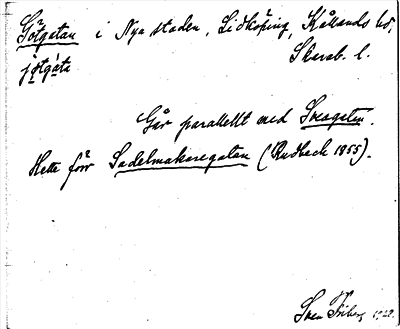 Götgatan i Nya staden, Lidköping, Kållands hd,
jötgata Skarab. l.
Går parallellt med Sveagatan.
Hette förr Sadelmakaregatan (Rudbeck 1855).
Sven Friberg